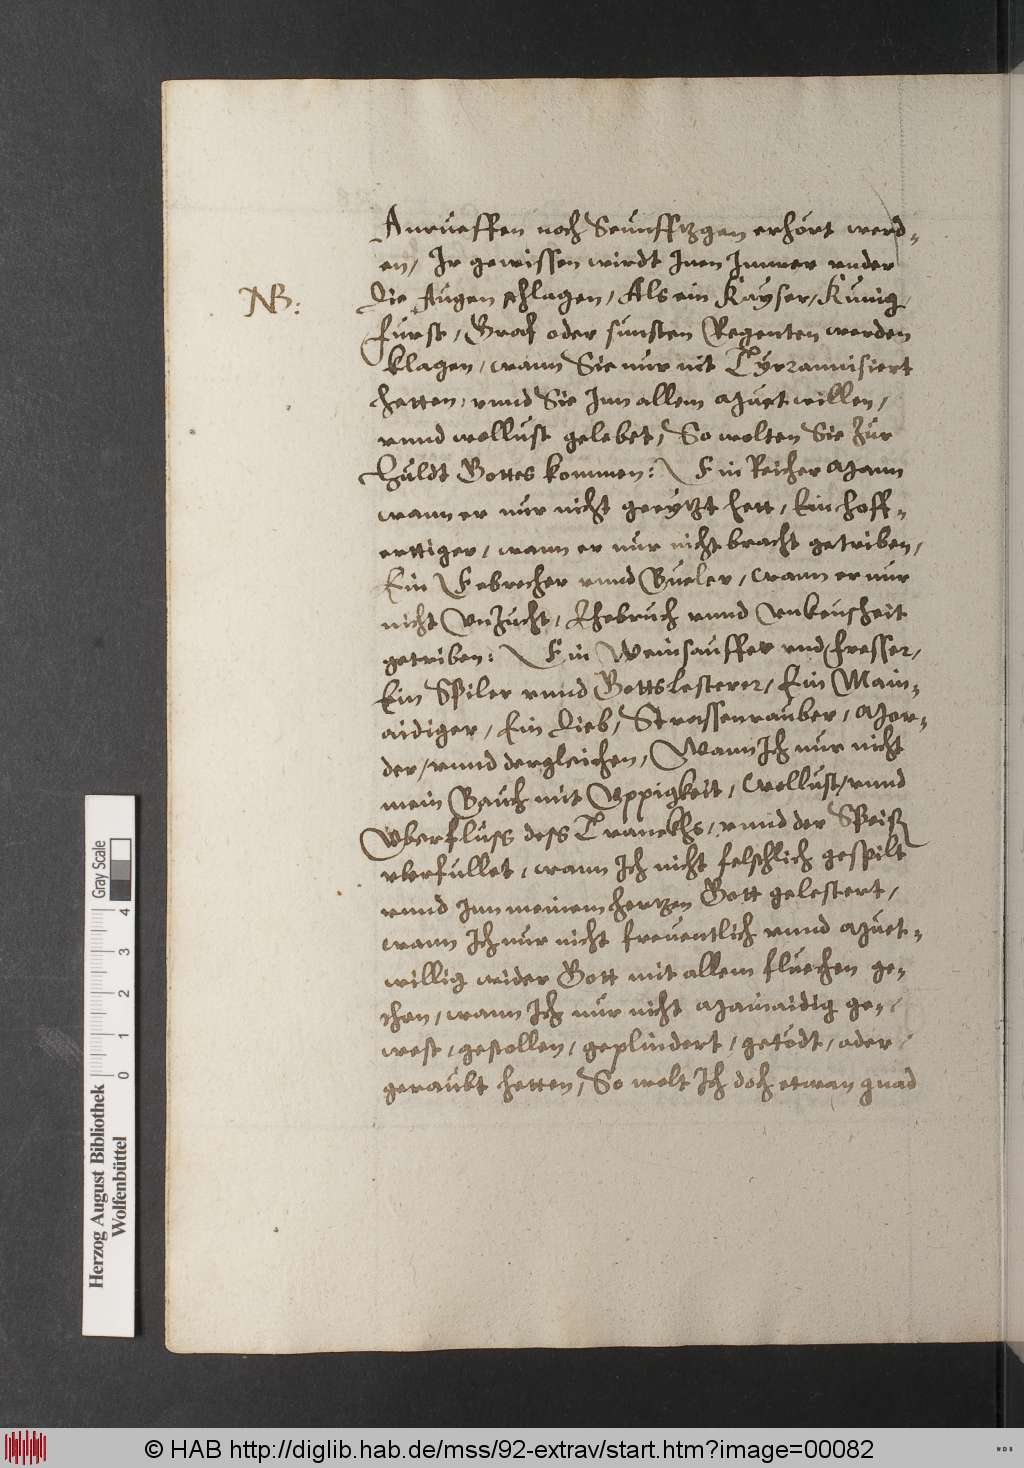 Anrueffen noch Seunffzgen erhört werd-
en, Ir gewissen wirdt Inen Immer under
NB:
die Augen schlagen, Als ein Kayser, Künig,
Fürst, Graf oder sunsten Regenten werden
klagen, wann Sie nur nit Tyrannisiert
hetten, vnnd Sie Inn allem Muetwillen,
vnnd wollust gelebet, So wolten Sie zur
Huldt Gottes kommen: Ein Reicher Mann
wann er nur nicht geeytzt hett, Ein hoff-
erttiger, wann er nur nicht bracht getriben,
Ein Eebrecher vnnd Bueler, wann er nur
nicht Vnzucht, Ehebruch vnnd Vnkeusheit
getriben: Ein Weinsauffer vnd fresser,
Ein Spiler vnnd Gottslesterer, Ein Main-
aidiger, Ein Dieb, Strassenrauber, Mor-
der, vnnd dergleichen, Wann Ich nur nicht
mein Bauch mit Vppigkeit, Wollust, vnnd
Vberfluss dess Tranckhs, vnnd der Speiß
vberfullet, wann Ich nicht felschlich gespilt
vnnd Inn meinem hertzen Gott gelestert,
wann Ich nur nicht freuentlich vnnd Muet-
willig wider Gott mit allem fluechen ge-
chen, wann Ich nur nicht Mainaidig ge-
west, gestollen, geplündert, getödt, oder
geraubt hetten, So wolt Ich doch etwan gnad
Herzog August Bibliothek
Wolfenbüttel
0 1 2 3 4
Gray Scale
© HAB http://diglib.hab.de/mss/92-extrav/start.htm?image=00082